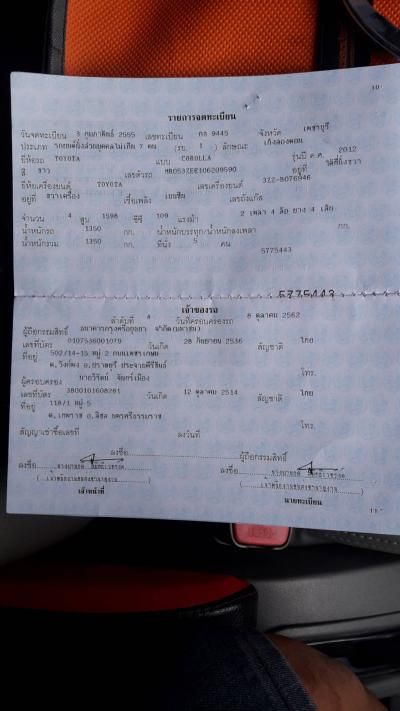 10
รายการจดทะเบียน
วันจดทะเบียน 3 กุมภาพันธ์ 2555 เลขทะเบียน กธ 9445 จังหวัด เพชรบุรี
ประเภท รถยนต์นั่งส่วนบุคคลไม่เกิน 7 คน (รย. 1 ) ลักษณะ เก๋งสองตอน
ยี่ห้อรถ TOYOTA แบบ COROLLA รุ่นปี ค.ศ. 2012
สี ขาว เลขตัวรถ MR053ZEE106209590 อยู่ที่
ยี่ห้อเครื่องยนต์ TOYOTA เลขเครื่องยนต์ 3ZZ-B076946
อยู่ที่ ขวาเครื่อง เชื้อเพลิง เบนซิน เลขถังแก๊ส
จำนวน 4 สูบ 1598 ซีซี 109 แรงม้า 2 เพลา 4 ล้อ ยาง 4 เส้น
น้ำหนักรถ 1350 กก. น้ำหนักบรรทุก/น้ำหนักลงเพลา กก.
น้ำหนักรวม 1350 กก. ที่นั่ง 5 คน
5775443
5775443
เจ้าของรถ
ลำดับที่ 4 วันที่ครอบครองรถ 8 ตุลาคม 2562
ผู้ถือกรรมสิทธิ์ ธนาคารกรุงศรีอยุธยา จำกัด (มหาชน)
เลขที่บัตร 0107536001079 วันเกิด 28 กันยายน 2536 สัญชาติ ไทย
ที่อยู่ 502/14-15 หมู่ 2
โทร.
ผู้ครอบครอง นายวิรัตน์
เลขที่บัตร 3800101608281 วันเกิด 12 ตุลาคม 2514 สัญชาติ ไทย
ที่อยู่ 118/1 หมู่ 5
นครศรีธรรมราช โทร.
สัญญาเช่าซื้อเลขที่ ลงวันที่
ลงชื่อ ผู้ถือกรรมสิทธิ์
ลงชื่อ ลงชื่อ
เจ้าหน้าที่ นายทะเบียน
11